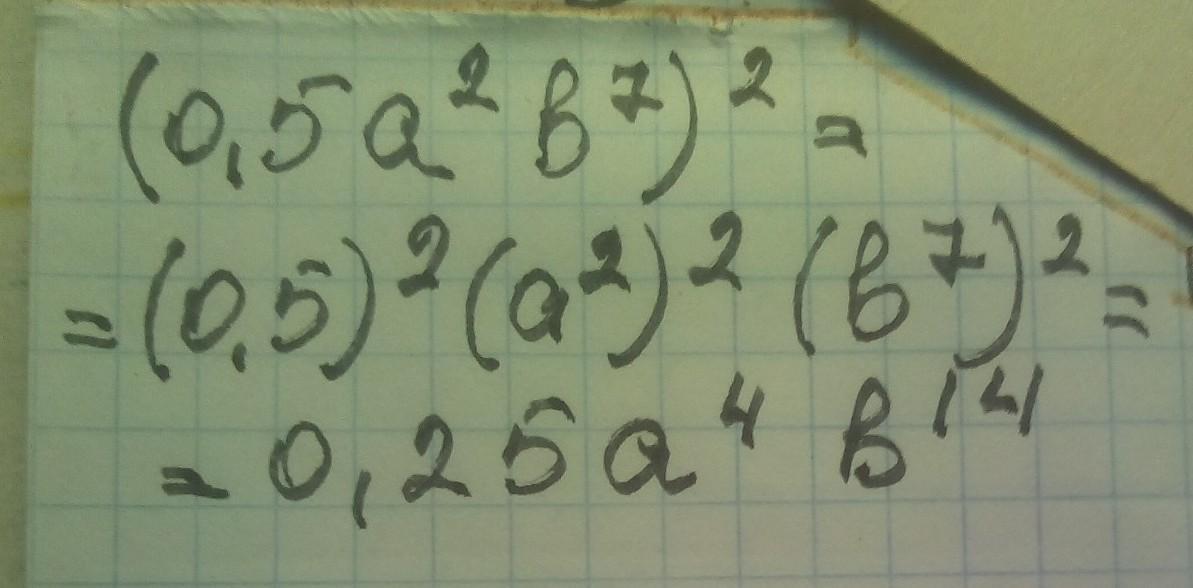 (0,5a²b⁷)² =
= (0,5)² (a²)² (b⁷)² =
= 0,25a⁴ b¹⁴